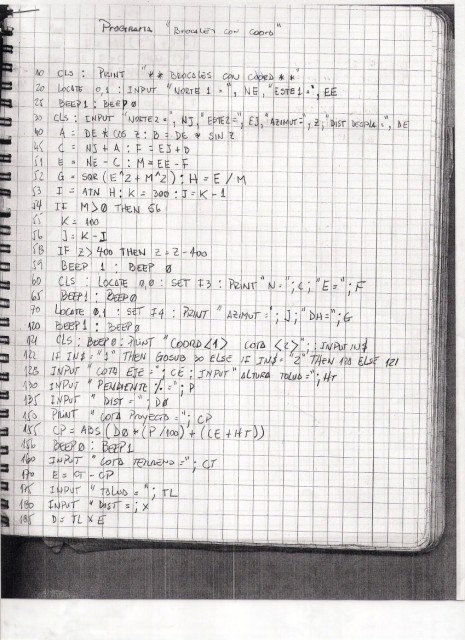 PROGRAMA "BROCALES CON COORD"
10 CLS : PRINT "** BROCALES CON COORD **"
20 LOCATE 0,1 : INPUT "NORTE 1 =", NE, "ESTE1=", EE
25 BEEP1 : BEEP0
30 CLS: INPUT "NORTE2=", NJ, "ESTE2=", EJ, "AZIMUT=", Z, "DIST DESPLA=", DE
40 A = DE * COS Z : B = DE * SIN Z
45 C = NJ + A : F = EJ + B
51 E = NE - C : M = EE - F
52 G = SQR (E^2 + M^2) : H = E / M
53 I = ATN H : K = 300 : J = K - I
54 IF M>0 THEN 56
55 K = 100
56 J = K - I
58 IF Z > 400 THEN Z = Z - 400
59 BEEP 1 : BEEP 0
60 CLS : LOCATE 0,0 : SET F3 : PRINT "N=";C;"E=";F
65 BEEP1 : BEEP0
70 LOCATE 0,1 : SET F4 : PRINT "AZIMUT="; J; "DH="; G
120 BEEP1 : BEEP0
121 CLS : BEEP0 : PRINT "COORD<1> COTA <2>" : INPUT IN$
122 IF IN$="1" THEN GOSUB 30 ELSE IF IN$="2" THEN 128 ELSE 121
128 INPUT "COTA EJE="; CE : INPUT "ALTURA TALUD="; HT
130 INPUT "PENDIENTE %="; P
135 INPUT "DIST="; D0
150 PRINT "COTA PROYECTO="; CP
155 CP = ABS (D0 * (P/100) + (CE + HT))
156 BEEP0 : BEEP1
160 INPUT "COTA TERRENO="; CT
170 E = CT - CP
175 INPUT "TALUD="; TL
180 INPUT "DIST=; X
185 D = TL X E